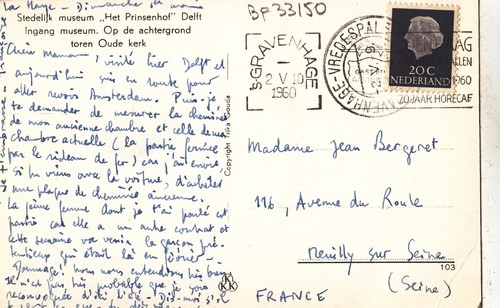 La Haye - Dimanche 1er
Stedelijk museum „Het Prinsenhof" Delft
Ingang museum. Op de achtergrond
toren Oude kerk
Chère maman, visité hier Delft et
aujourd'hui suis en route pour
aller revoir Amsterdam. Puis-je
te demander de mesurer la cheminée
de mon ancienne chambre et celle de ma
chambre actuelle (la partie fermée
par le rideau de fer) car j'ai envie,
si je viens avec la voiture, d'acheter
une plaque de cheminée ancienne.
La jeune femme dont je t'ai parlé est
partie car elle a un autre contrat et
cette semaine va venir le garçon
qui était là en février.
Dommage! Nous nous entendions très bien.
Il n'est pas très probable que je sois
Dis-moi s'il
Copyright Trifa Gouda
KKK
BF33150
'S-GRAVENHAGE
2 V 10
1960
'S-GRAVENHAGE-VREDESPAL
20 C
NEDERLAND
1960
20 JAAR HORECAF
Madame Jean Bergeret
116, Avenue du Roule
Neuilly sur Seine
103
(Seine)
FRANCE